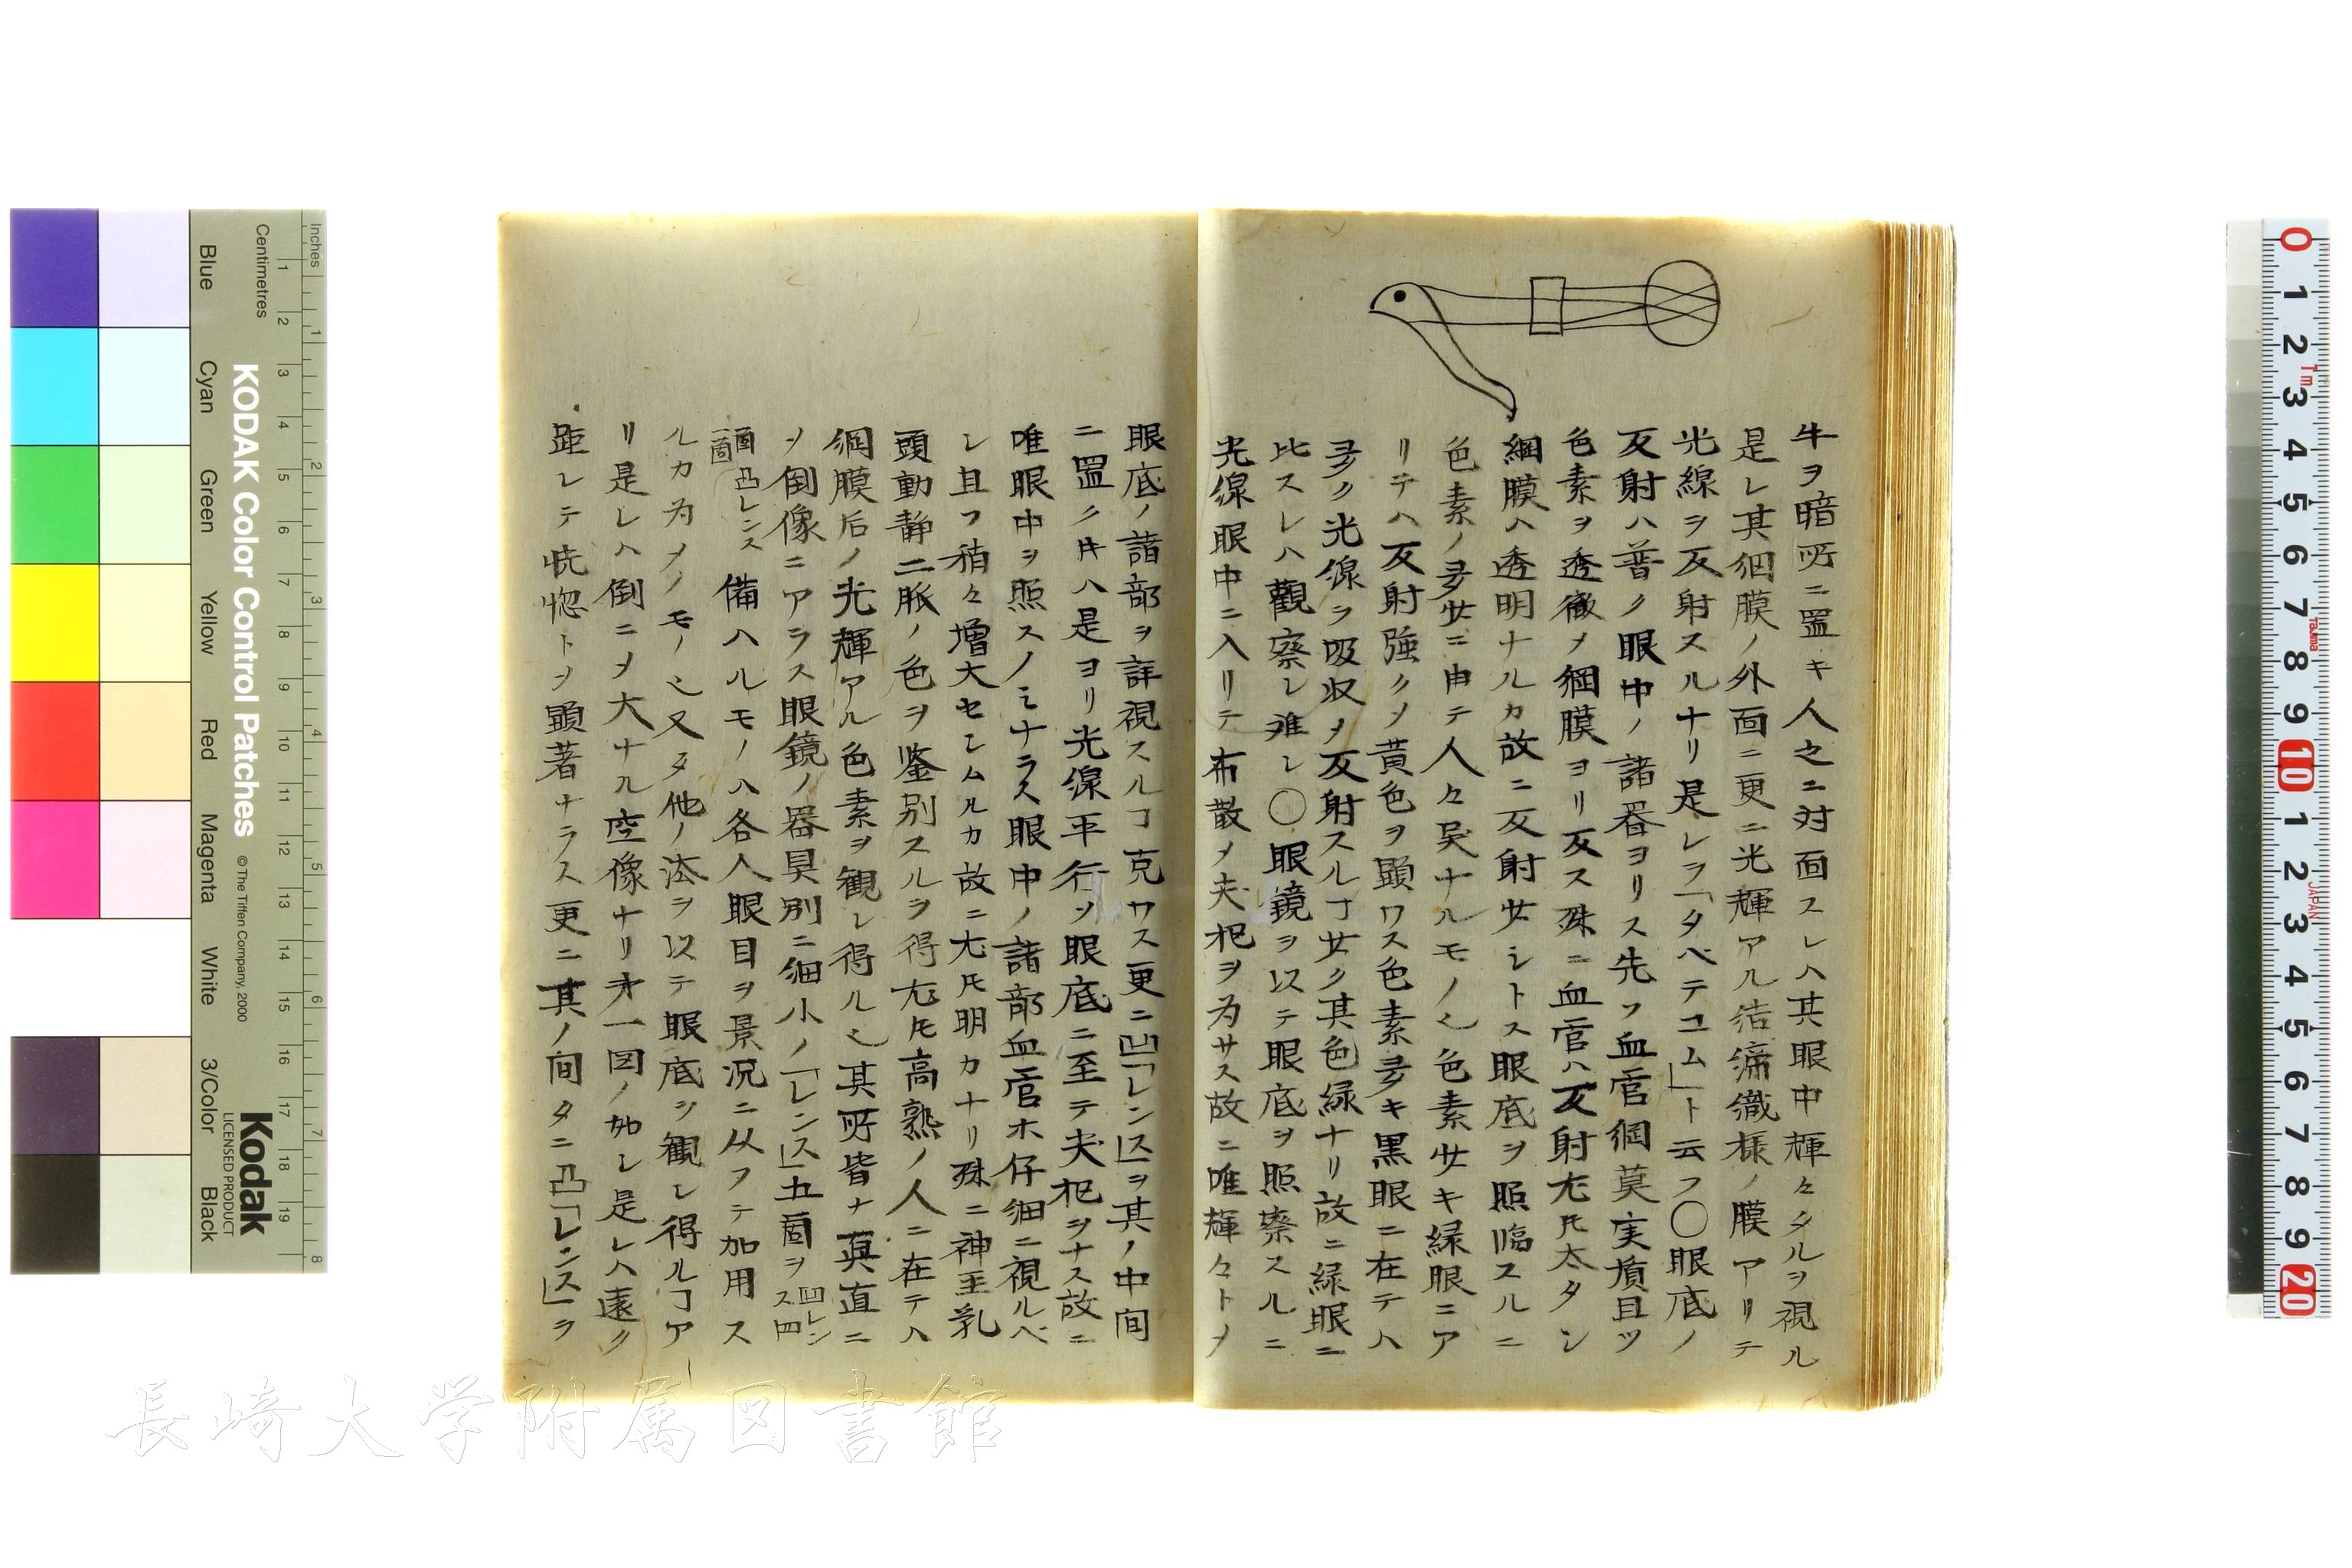 牛ヲ暗所ニ置キ人之ニ対面スレハ其眼中輝々タルヲ視ル
是レ其網膜ノ外面ニ更ニ光輝アル結締織様ノ膜アリテ
光線ヲ反射スルナリ是レヲ「タペテユム」ト云フ〇眼底ノ
反射ハ普ク眼中ノ諸器ヨリス先ツ血管網莫実質且ツ
色素ヲ透徹メ網膜ヨリ反ス殊ニ血管ハ反射尤𪜈太タシ
網膜ハ透明ナルカ故ニ反射少シトス眼底ヲ照臨スルニ
色素ノ多少ニ由テ人々異ナルモノ也色素少キ緑眼ニア
リテハ反射強クメ黄色ヲ顕ワス色素多キ黒眼ニ在テハ
多ク光線ヲ吸収メ反射スルヿ少ク其色緑ナリ故ニ緑眼ニ
比スレハ観察シ難シ〇眼鏡ヲ以テ眼底ヲ照察スルニ
光線眼中ニ入リテ布散メ夫杞ヲ為サス故ニ唯輝々トメ
眼底ノ諸部ヲ詳視スルヿ克ワス更ニ凹「レンス」ヲ其ノ中間
ニ置ク㐧ハ是ヨリ光線平行シ眼底ニ至テ夫杞ヲナス故ニ
唯眼中ヲ照スノミナラス眼中ノ諸部血管ホ仔細ニ視ルベ
シ且フ稍々増大セシムルカ故ニ尤𪜈明カナリ殊ニ神至乳
頭動静二脈ノ色ヲ鑒別スルヲ得尤𪜈高熟ノ人ニ在テハ
網膜后ノ光輝アル色素ヲ観シ得ル也其所皆ナ真直ニ
メ倒像ニアラス眼鏡ノ器具別ニ細小ノ「レンス」五箇ヲ凹レンス四
箇凸レンス一箇備ハルモノハ各人眼目ヲ景況ニ从フテ加用ス
ルカ為メノモノ也又タ他ノ法ヲ以テ眼底ヲ観シ得ルヿア
リ是レハ倒ニメ大ナル空像ナリ㐧一図ノ如シ是レハ遠ク
距レテ恍惚トメ顕著ナラス更ニ其ノ間タニ凸「レンス」ヲ
長崎大学附属図書館
Inches
Centimetres
KODAK Color Control Patches
© The Tiffen Company, 2000
Kodak
LICENSED PRODUCT
Blue
Cyan
Green
Yellow
Red
Magenta
White
3/Color
Black
1 2 3 4 5 6 7 8 9 10 11 12 13 14 15 16 17 18 19
1 2 3 4 5 6 7 8
0 1 2 3 4 5 6 7 8 9 10 1 2 3 4 5 6 7 8 9 20
1m
Tajima
JAPAN